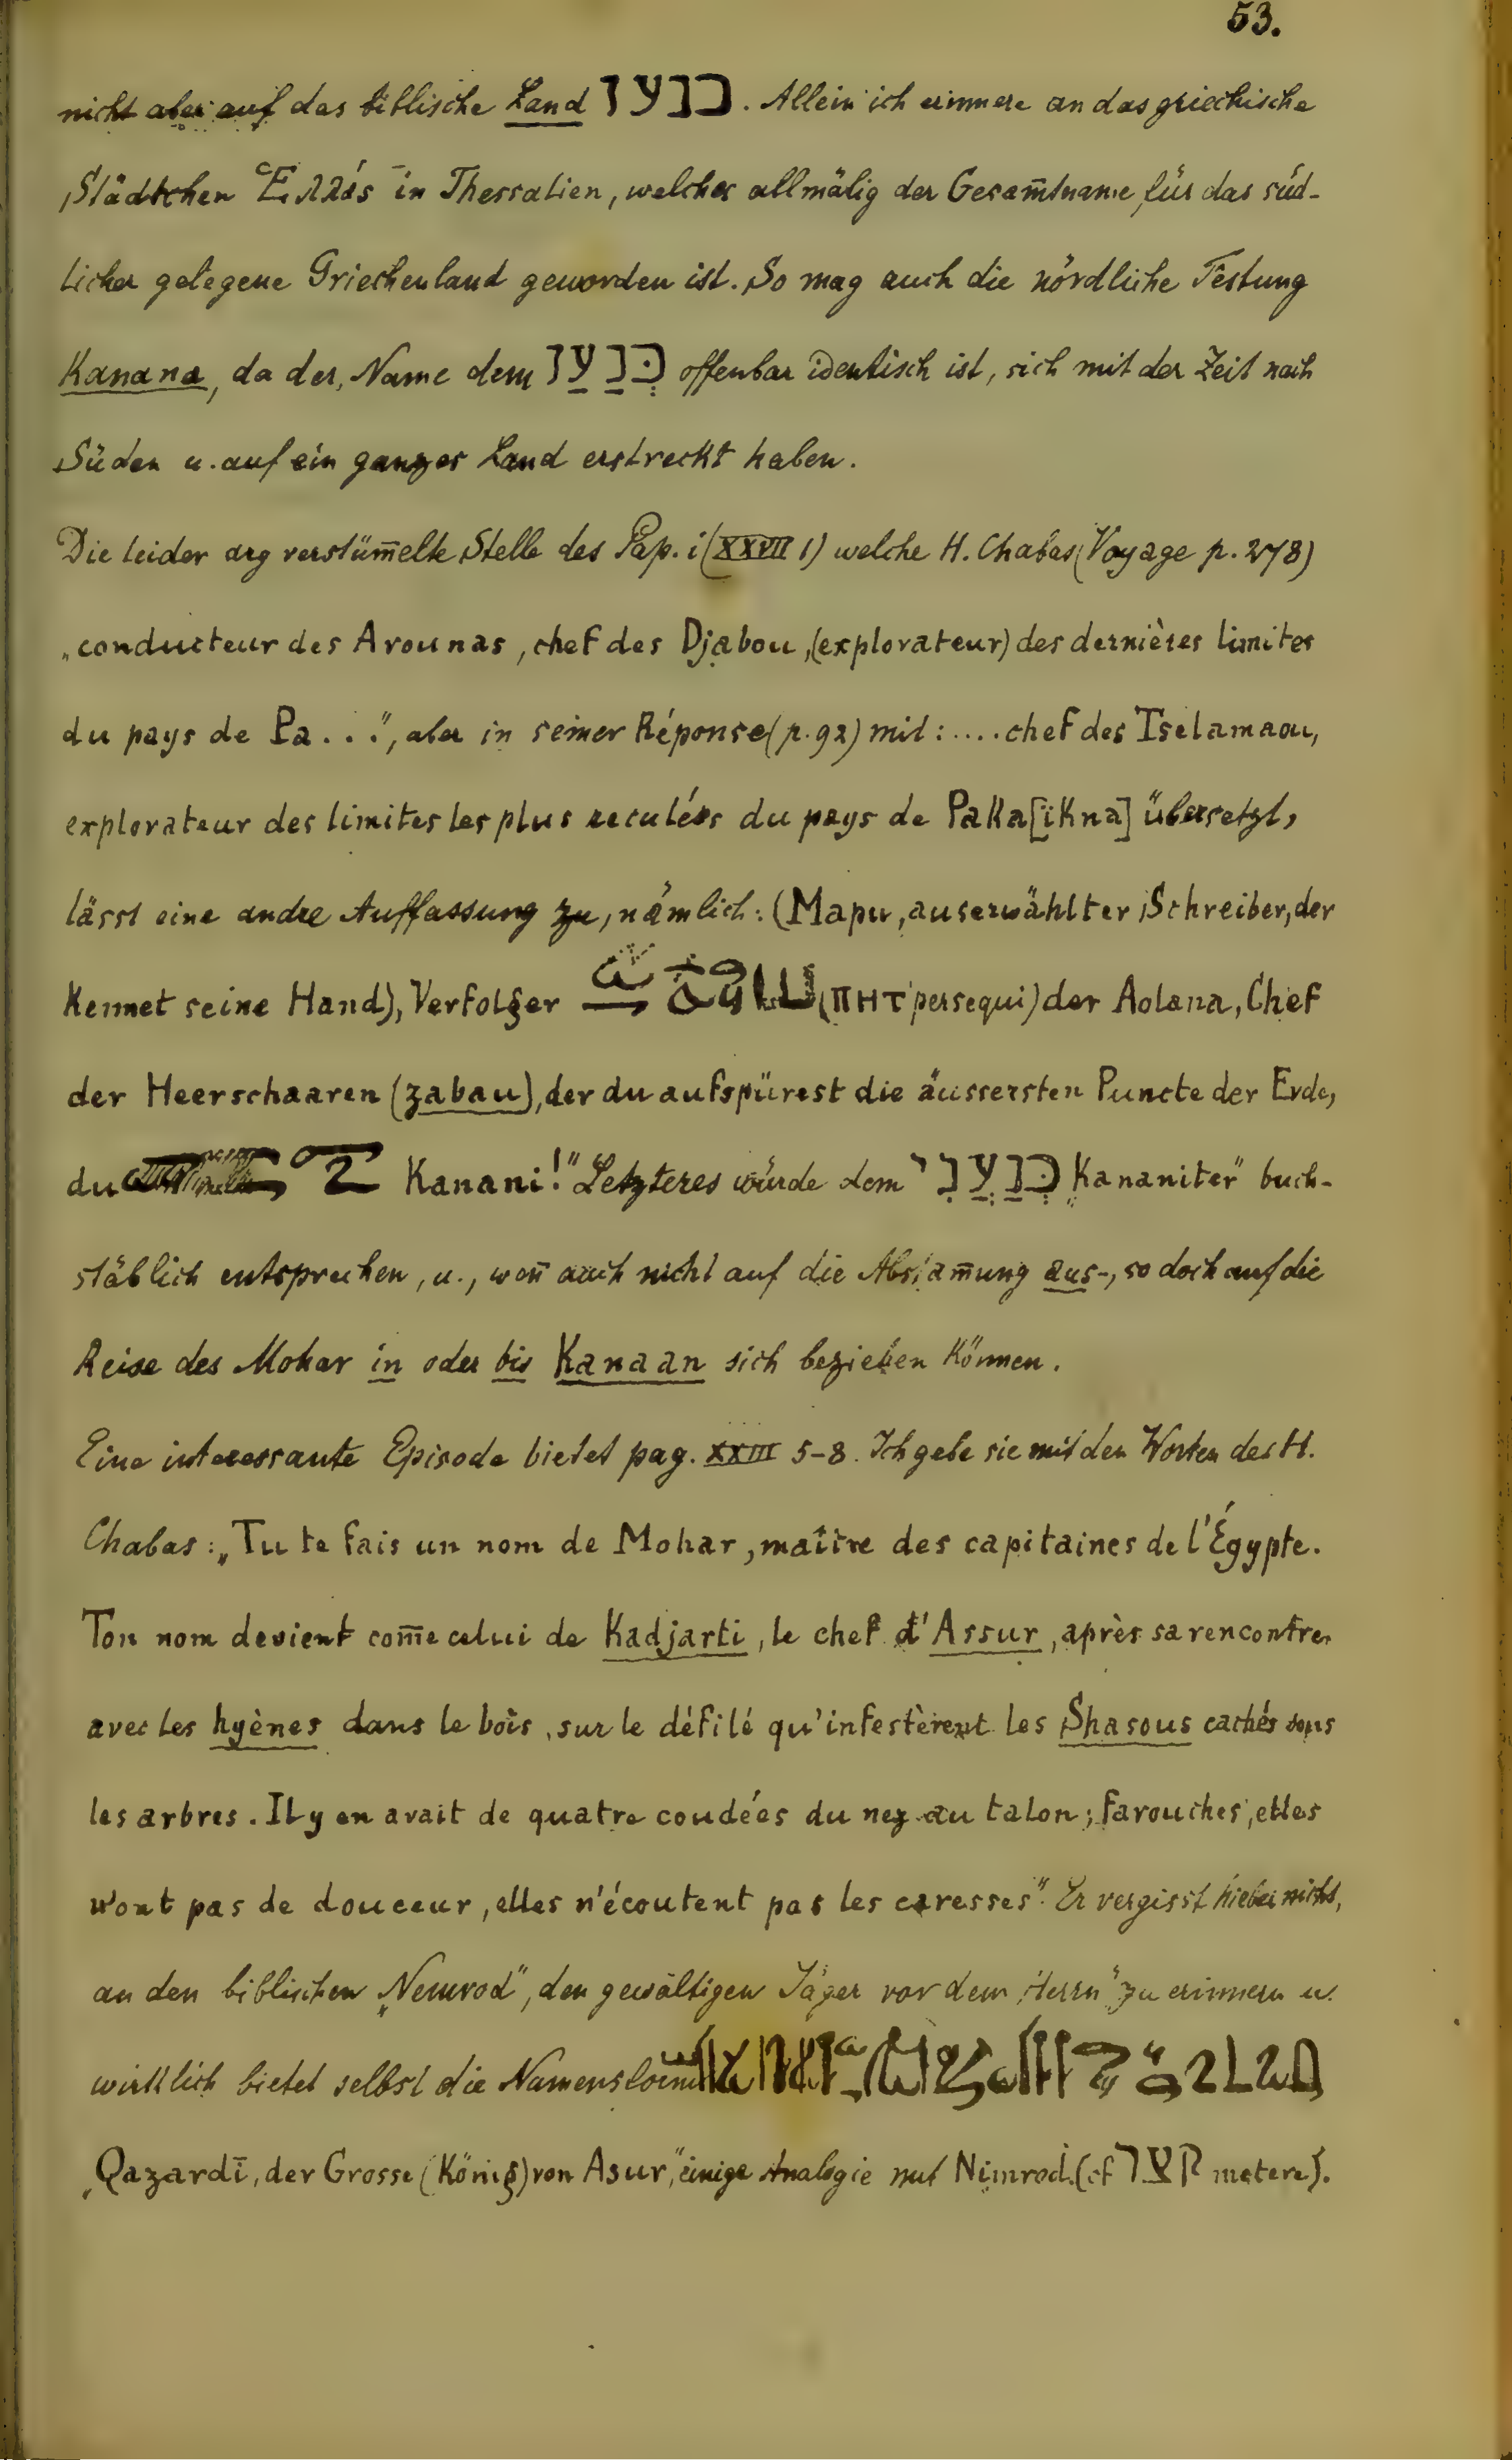 53.
nicht aber auf das biblische Land כנען. Allein ich erinnere an das griechische
Städtchen Ἑλλάς in Thessalien, welches allmälig der Gesam̅tname für das süd-
licher gelegene Griechenland geworden ist. So mag auch die nördliche Festung
Kanana, da der Name dem כְּנַעַן offenbar identisch ist, sich mit der Zeit nach
Süden u. auf ein ganzes Land erstreckt haben.
Die leider arg verstüm̅elte Stelle des Pap. i (XXVII 1) welche H. Chabas (Voyage p. 278)
„conducteur des Arounas, chef des Djabou, (explorateur) des dernières limites
du pays de Pa...", aber in seiner Réponse (p. 92) mit: .... chef des Tselamaou,
explorateur des limites les plus reculées du pays de Paka[ïkna] übersetzt,
lässt eine andre Auffassung zu, nämlich: (Mapu, auserwählter Schreiber, der
kennet seine Hand), Verfolger (ΠΗΤ persequi) der Aolana, Chef
der Heerschaaren (zabau), der du aufspürest die äussersten Puncte der Erde,
du Kanani!" Letzteres würde dem כְּנַעֲנִי „Kananiter" buch-
stäblich entsprechen, u., wen̅ auch nicht auf die Abstam̅ung aus-, so doch auf die
Reise des Mohar in oder bis Kanaan sich beziehen können.
Eine interessante Episode bietet pag. XXIII 5-8. Ich gebe sie mit den Worten des H.
Chabas: „Tu te fais un nom de Mohar, maître des capitaines de l'Égypte.
Ton nom devient com̅e celui de Kadjarti, le chef d'Assur, après sa rencontre
avec les hyènes dans le bois, sur le défilé qu'infestèrent les Shasous cachés sous
les arbres. Il y en avait de quatre coudées du nez au talon; farouches, elles
n'ont pas de douceur, elles n'écoutent pas les caresses". Er vergisst hiebei nicht,
an den biblischen „Nemrod", den gewaltigen Jäger vor dem Herrn" zu erinnern u.
wirklich bietet selbst die Namensform
„Qazardī, der Grosse (König) von Asur," einige Analogie mit Nimrod. (cf קצר metere).